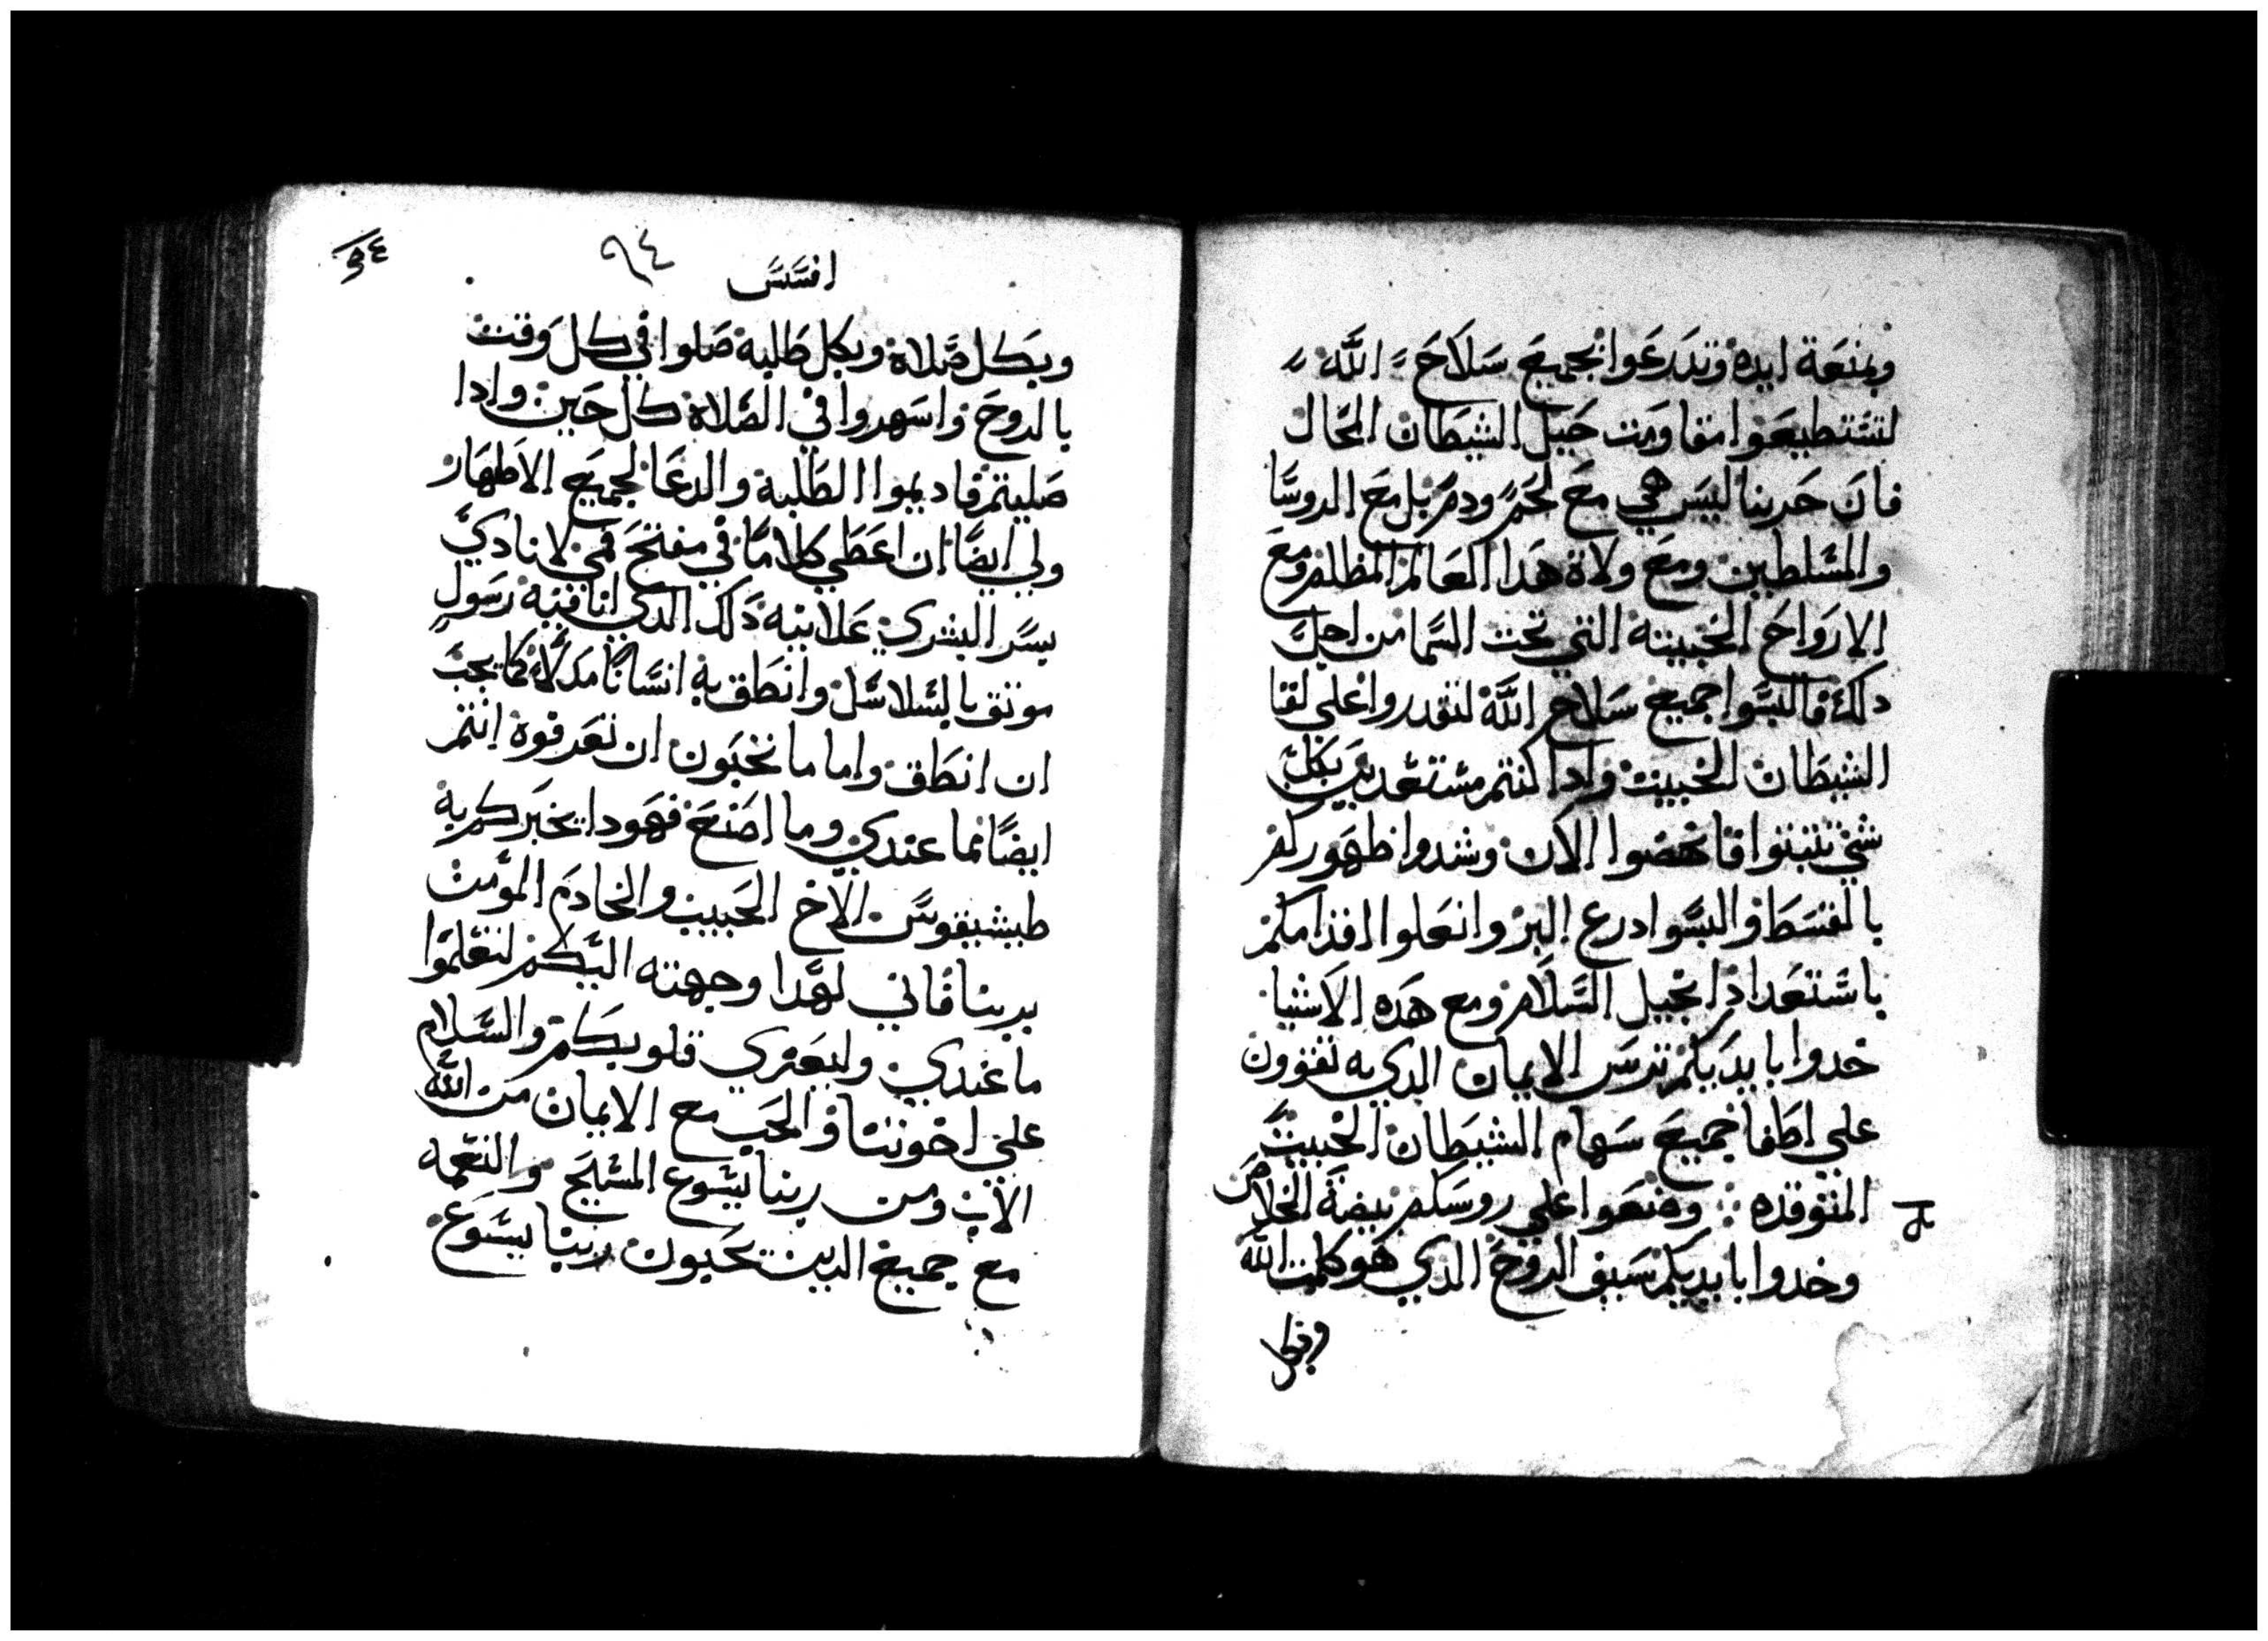 وبمنعة ايده وتدرعوا بجميع سلاح الله
لتستطيعوا مقاومت حيل الشيطان المحال
فان حربنا ليس هي مع لحم ودم بل مع الروسا
والمسلطين ومع ولاة هدا العالم المظلم ومع
الارواح الخبيثه التي تحت السما من اجل
دلك فالبسوا جميع سلاح الله لتقدروا علي لقا
الشيطان الخبيث وادا كنتم مستعدين بكل
شي تثبتوا فانهضوا الان وشدوا ظهوركم
بالقسط والبسوا درع البر وانعلوا اقدامكم
باستعداد انجيل السلام ومع هده الاشيا
خدوا بايديكم ترس الايمان الدي به تقوون
علي اطفا جميع سهام الشيطان الخبيث
المتوقده وضعوا علي روسكم بيضة الخلاص
وخدوا بايديكم سيف الروح الدي هو كلمت الله
وبكل
افسس
٩٤
وبكل صلاة وبكل طلبه صلوا في كل وقت
بالروح واسهروا في الصلاة كل حين وادا
صليتم فاديموا الطلبة والدعا لجميع الاطهار
ولي ايضا ان اعطي كلاما في مفتح فمي لانادي
بسر البشري علانيه دلك الدي انا فيه رسول
موثق بالسلاسل وانطق به انسانا مدلا كما يجب
ان انطق واما ما تحبون ان تعرفوه انتم
ايضا مما عندي وما اصنع فهودا يخبركم به
طيشيقوس الاخ الحبيب والخادم المومن
بربنا فاني لهدا وجهته اليكم لتعلموا
ما عندي وليعزي قلوبكم والسلام
علي اخوتنا والحب مع الايمان من الله
الاب ومن ربنا يسوع المسيح والنعمه
مع جميع الدين يحبون ربنا يسوع